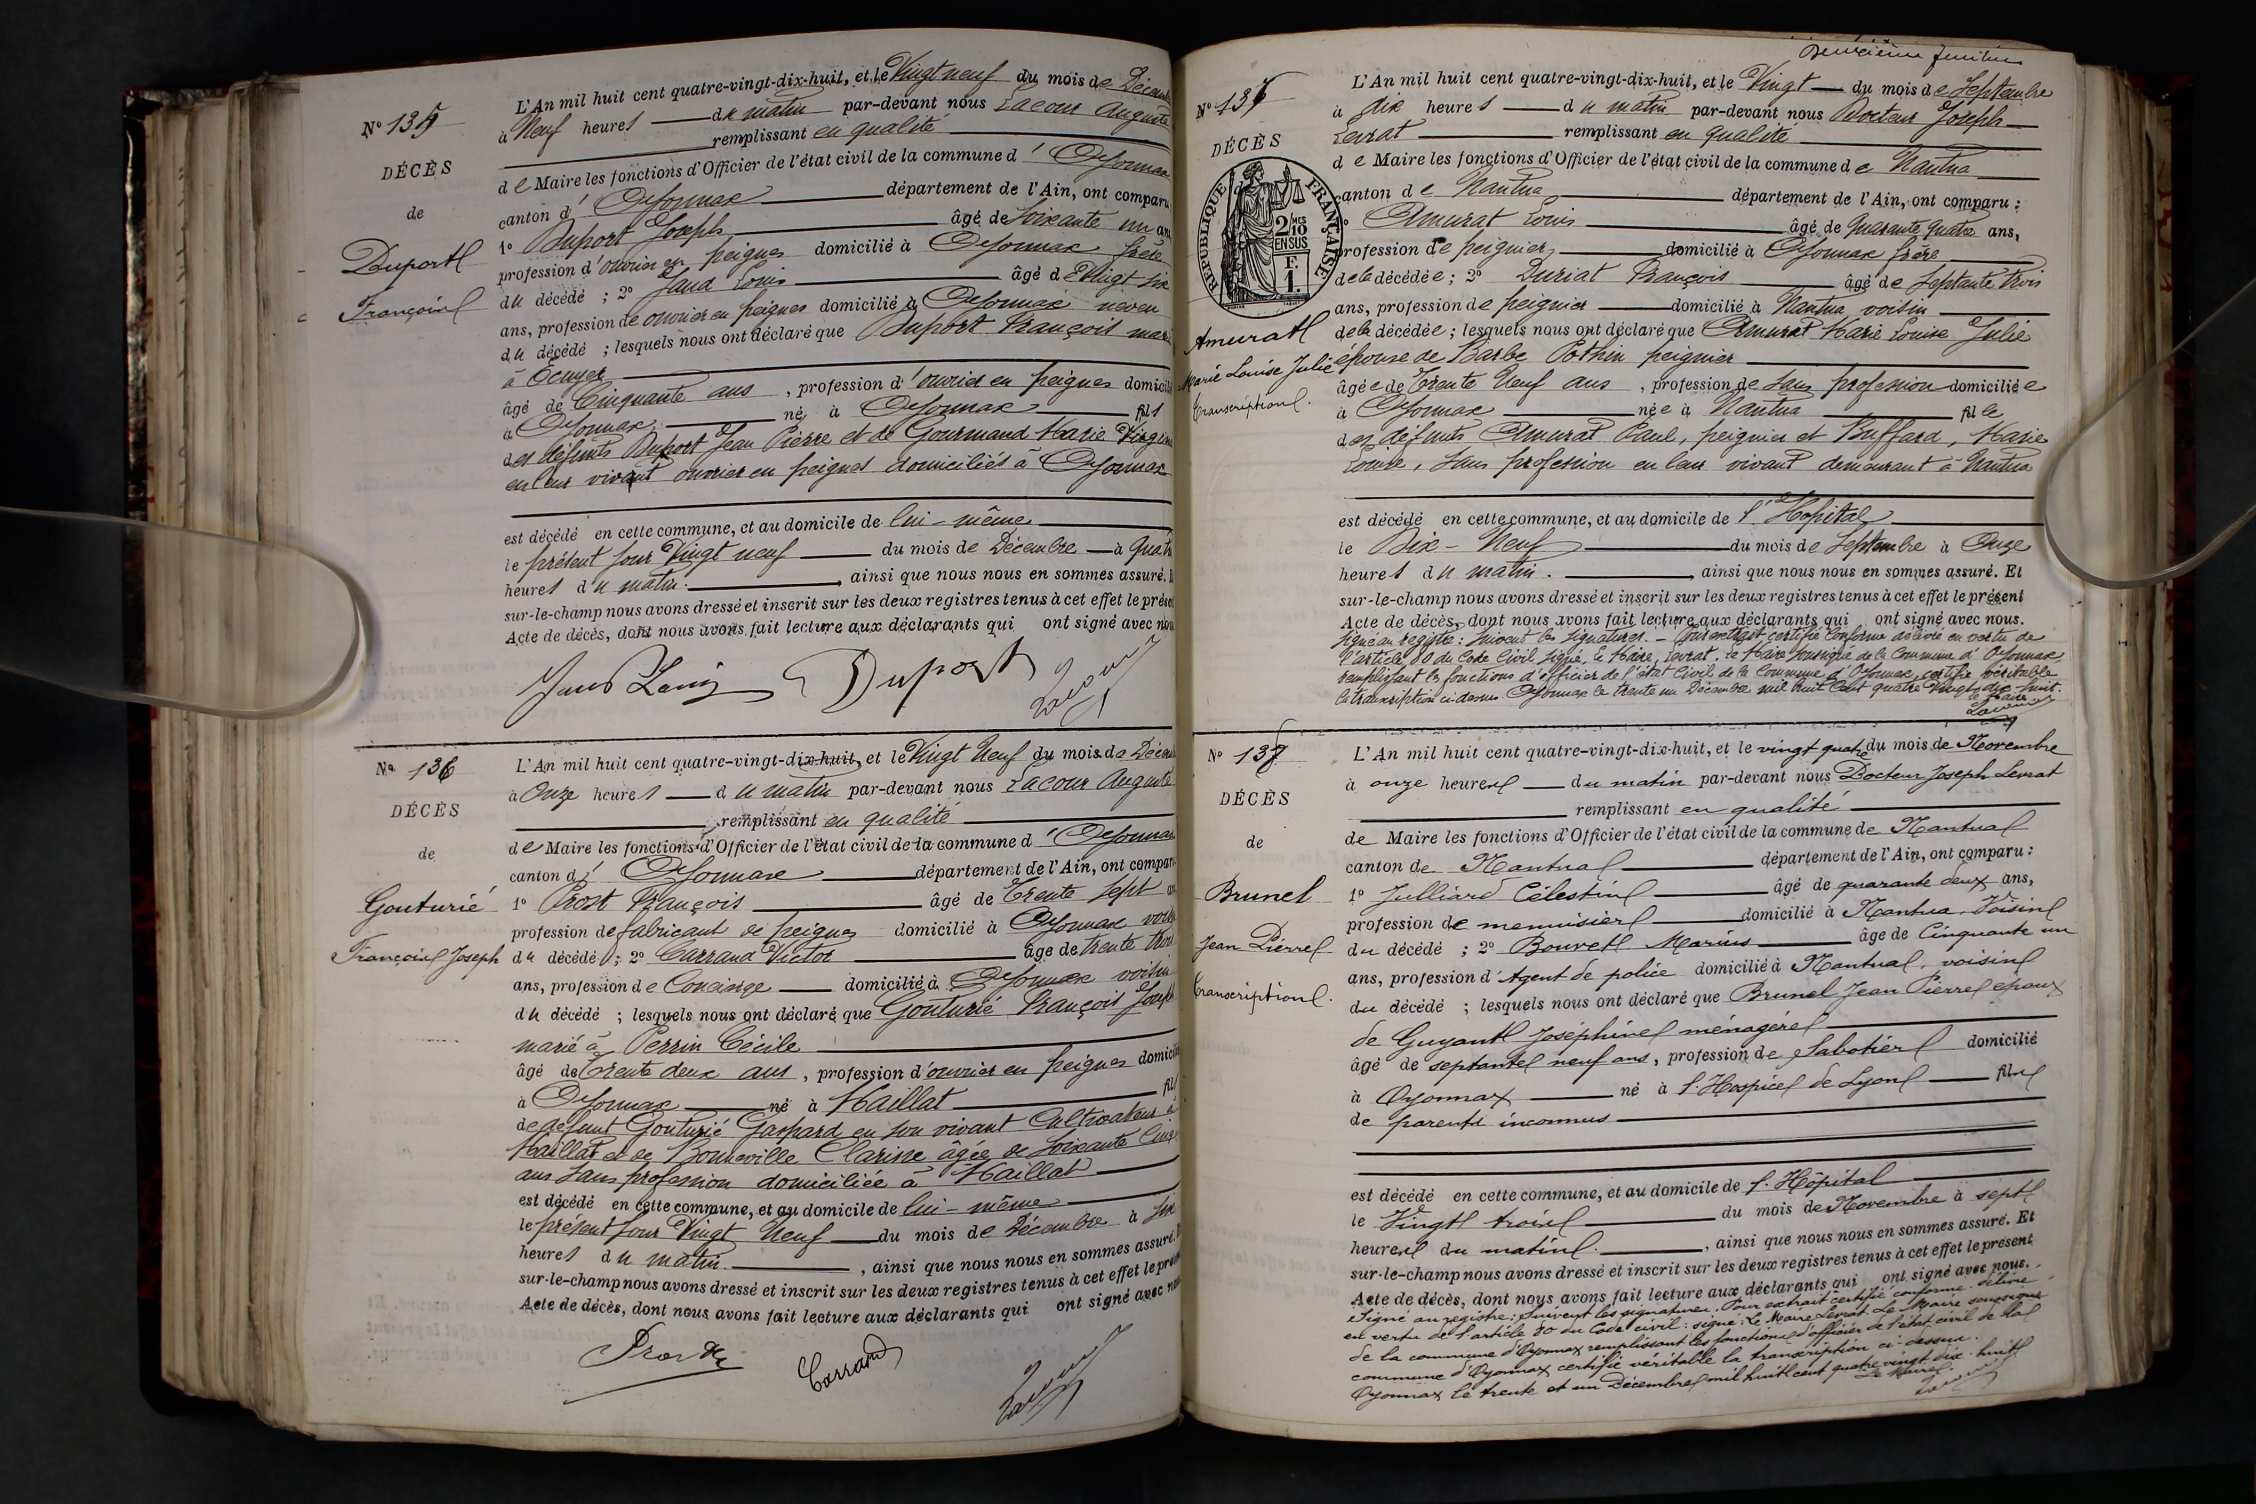 N° 135
DÉCÈS
de
Duport
François
L'An mil huit cent quatre-vingt-dix-huit, et le Vingt neuf du mois de Décemb
à Neuf heures du matin par-devant nous Lacour Auguste
remplissant en qualité
de Maire les fonctions d'Officier de l'état civil de la commune d' Oyonnax
canton d' Oyonnax département de l'Ain, ont comparu
1° Duport Joseph âgé de soixante un an
profession d'ouvrier en peignes domicilié à Oyonnax frère
du décédé ; 2° Jaud Louis âgé de Vingt six
ans, profession de ouvrier en peignes domicilié à Oyonnax neveu
du décédé ; lesquels nous ont déclaré que Duport François mari
à Ecuyer
âgé de Cinquante ans , profession d'ouvrier en peignes domicilié
à Oyonnax né à Oyonnax fils
des défunts Duport Jean Pierre et de Gourmand Marie Virginie
en leur vivant ouvrier en peignes domiciliés à Oyonnax
est décédé en cette commune, et au domicile de lui-même
le présent jour Vingt neuf du mois de Décembre à Quatre
heures du matin. , ainsi que nous nous en sommes assuré. E
sur-le-champ nous avons dressé et inscrit sur les deux registres tenus à cet effet le présen
Acte de décès, dont nous avons fait lecture aux déclarants qui ont signé avec nou
Jaud Louis Duport Lacour
N° 136
DÉCÈS
de
Gouturié
François Joseph
L'An mil huit cent quatre-vingt-dix-huit, et le Vingt Neuf du mois de Décem
à Onze heures du matin par-devant nous Lacour Auguste
remplissant en qualité
de Maire les fonctions d'Officier de l'état civil de la commune d' Oyonnax
canton d' Oyonnax département de l'Ain, ont compar
1° Prost François âgé de Trente sept an
profession de fabricant de peignes domicilié à Oyonnax voisin
du décédé ; 2° Carrand Victor âgé de trente trois
ans, profession de Concierge domicilié à Oyonnax voisin
du décédé ; lesquels nous ont déclaré que Gouturié François Joseph
marié à Perrin Cécile
âgé de Trente deux ans , profession d'ouvrier en peignes domicilié
à Oyonnax né à Maillat fils
de défunt Gouturié Gaspard en son vivant Cultivateur à
Maillat et de Bonneville Clarisse âgée de soixante cinq
ans sans profession domiciliée à Maillat
est décédé en cette commune, et au domicile de lui-même
le présent jour Vingt Neuf du mois de Décembre à six
heures du matin. , ainsi que nous nous en sommes assuré. E
sur-le-champ nous avons dressé et inscrit sur les deux registres tenus à cet effet le présen
Acte de décès, dont nous avons fait lecture aux déclarants qui ont signé avec nou
Prost Carrand Lacour
Deuxième
N° 137
DÉCÈS
RÉPUBLIQUE FRANÇAISE
2/10 MES
EN SUS
F.
1.
Amurat
Marie Louise Julie
transcription.
L'An mil huit cent quatre-vingt-dix-huit, et le Vingt du mois de Septembre
à dix heures du matin par-devant nous Docteur Joseph
Levrat remplissant en qualité
de Maire les fonctions d'Officier de l'état civil de la commune de Nantua
canton de Nantua département de l'Ain, ont comparu :
1° Amurat Louis âgé de Quarante quatre ans,
profession de peignier domicilié à Oyonnax frère
de la décédée ; 2° Duriat François âgé de septante trois
ans, profession de peignier domicilié à Nantua voisin
de la décédée ; lesquels nous ont déclaré que Amurat Marie Louise Julie
épouse de Barbe Pothin peignier
âgée de Trente Neuf ans , profession de sans profession domiciliée
à Oyonnax née à Nantua fille
des défunts Amurat Paul, peignier et Buffard, Marie
Louise, sans profession en leur vivant demeurant à Nantua
est décédé en cette commune, et au domicile de l'Hôpital
le Dix-Neuf du mois de Septembre à Onze
heures du matin. , ainsi que nous nous en sommes assuré. Et
sur-le-champ nous avons dressé et inscrit sur les deux registres tenus à cet effet le présent
Acte de décès, dont nous avons fait lecture aux déclarants qui ont signé avec nous.
Signé au registre : suivent les signatures. – Pour extrait certifié conforme délivré en vertu de
l'article 80 du Code Civil signé, le Maire, Levrat. Le Maire soussigné de la Commune d'Oyonnax,
remplissant les fonctions d'officier de l'état Civil de la Commune d'Oyonnax, certifie véritable
la transcription ci-dessus Oyonnax le trente un Décembre mil huit cent quatre vingt dix huit.
Le Maire
Lacour
N° 138
DÉCÈS
de
Brunel
Jean Pierre
transcription.
L'An mil huit cent quatre-vingt-dix-huit, et le vingt quatre du mois de Novembre
à onze heures du matin par-devant nous Docteur Joseph Levrat
remplissant en qualité
de Maire les fonctions d'Officier de l'état civil de la commune de Nantua
canton de Nantua département de l'Ain, ont comparu :
1° Julliard Célestin âgé de quarante deux ans,
profession de menuisier domicilié à Nantua, Voisin
du décédé ; 2° Bouvet Marius âgé de Cinquante un
ans, profession d'Agent de police domicilié à Nantua, voisin
du décédé ; lesquels nous ont déclaré que Brunel Jean Pierre époux
de Guyant Joséphine ménagère
âgé de septante neuf ans, profession de Sabotier domicilié
à Oyonnax né à l'Hospice de Lyon fils
de parents inconnus
est décédé en cette commune, et au domicile de l'Hôpital
le Vingt trois du mois de Novembre à sept
heures du matin. , ainsi que nous nous en sommes assuré. Et
sur-le-champ nous avons dressé et inscrit sur les deux registres tenus à cet effet le présent
Acte de décès, dont nous avons fait lecture aux déclarants qui ont signé avec nous.
Signé au registre : suivent les signatures. Pour extrait certifié conforme délivré
en vertu de l'article 80 du Code civil : signé : Le Maire Levrat. Le Maire soussigné
de la commune d'Oyonnax remplissant les fonctions d'officier de l'état civil de la
commune d'Oyonnax certifie véritable la transcription ci-dessus.
Oyonnax le trente et un Décembre mil huit cent quatre vingt dix-huit
Le Maire.
Lacour